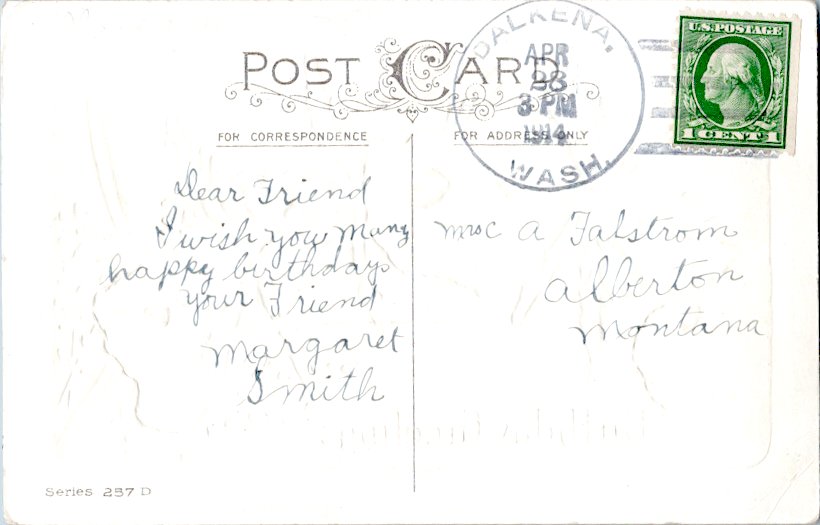 POST CARD
DALKENA,
APR
28
3 PM
1914
WASH.
U.S. POSTAGE
1 CENT 1
FOR CORRESPONDENCE
FOR ADDRESS ONLY
Dear Friend
I wish you many
happy birthdays
your Friend
Margaret
Smith
A Falstrom
Alberton
Montana
Series 237 D